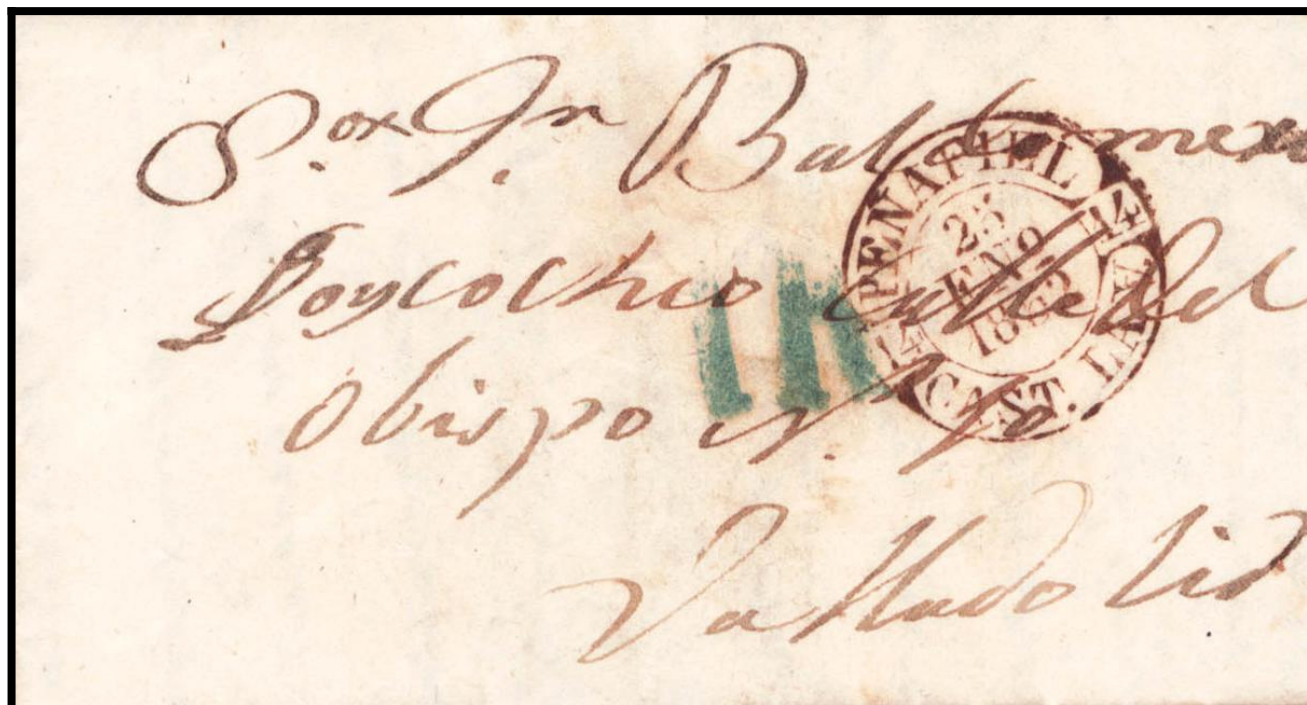 S.or Dn Baldomero
calle del
Obispo N.º 10
Valladolid
PEÑAFIEL
14
25
ENO
14
CAST. LA V.
1R